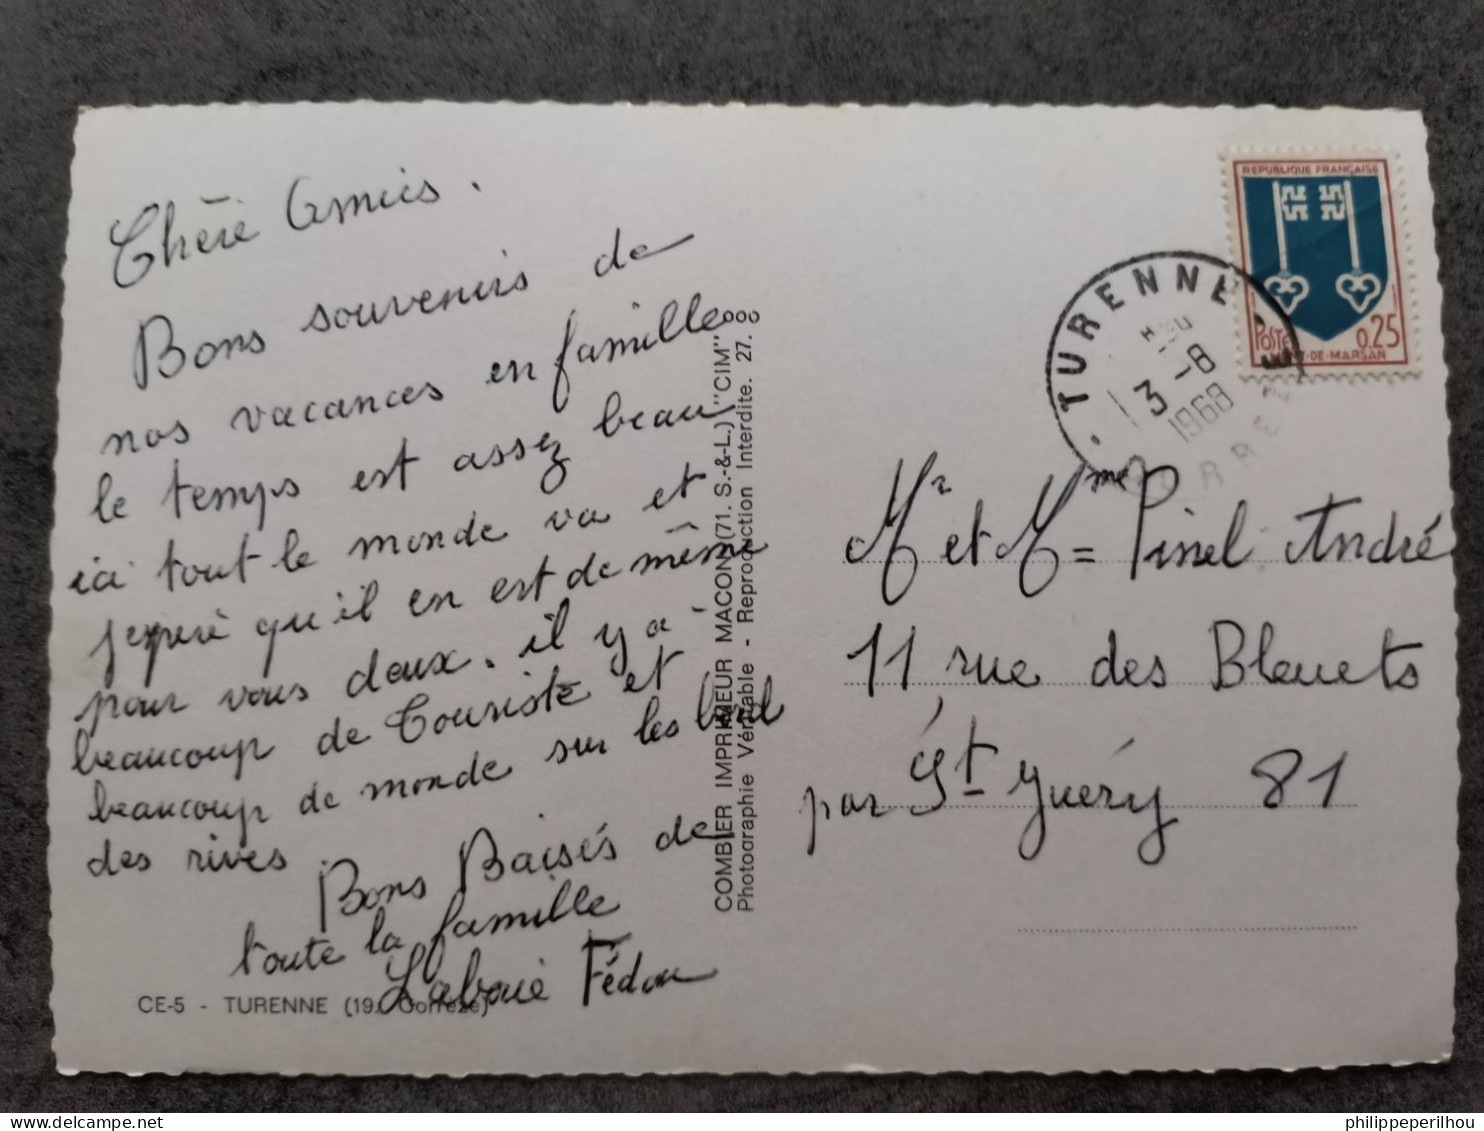 Chère Amies.
Bons souvenirs de
nos vacances en famille
le temps est assez beau
ici tout le monde va et
j'espère qu'il en est de même
pour vous deux. il y a
beaucoup de Touriste et
beaucoup de monde sur les bord
des rives
Bons Baisés de
toute la famille
Fédou
CE-5 - TURENNE (19. Corrèze)
COMBIER IMPRIMEUR MACON (71. S.-&-L.) "CIM"
Photographie Véritable - Reproduction Interdite. 27.
REPUBLIQUE FRANÇAISE
POSTES 0,25
MONT-DE-MARSAN
TURENNE
3 -8
1968
CORREZE
Mr et Mme Pinel André
11 rue des Bleuets
par St Juéry 81
philippeperilhou